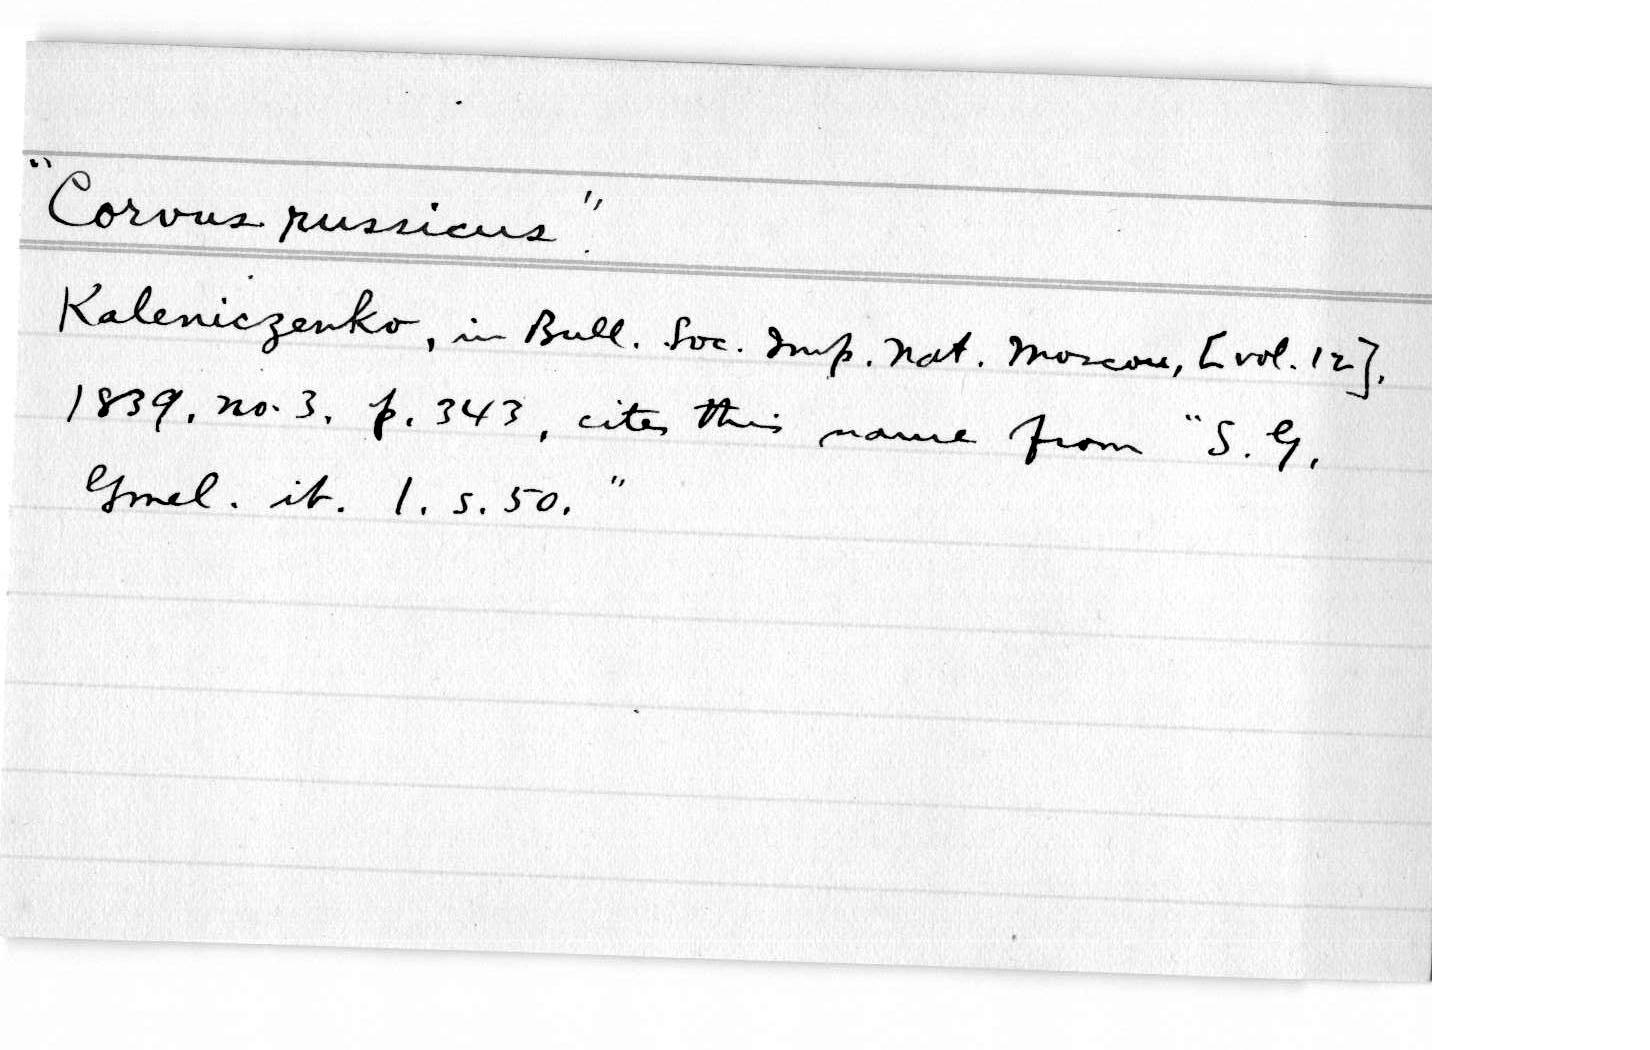 "Corvus russicus".
Kaleniczenko, in Bull. Soc. Imp. Nat. Moscou, [vol. 12],
1839, no. 3, p. 343, cites this name from "S. G.
Gmel. it. 1. s. 50."